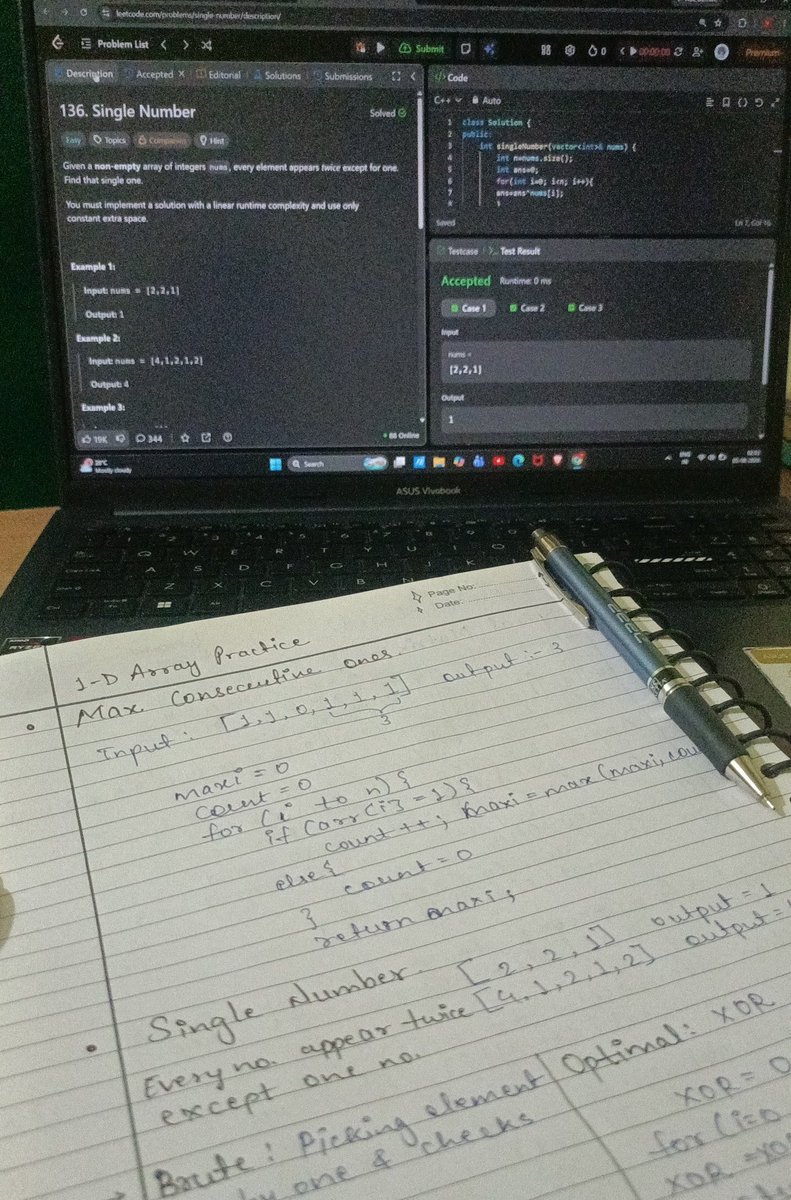 leetcode.com/problems/single-number/description/
Problem List
Submit
0
00:00:00
Premium
Description
Accepted
Editorial
Solutions
Submissions
136. Single Number
Solved
Easy
Topics
Companies
Hint
Given a non-empty array of integers nums, every element appears twice except for one.
Find that single one.
You must implement a solution with a linear runtime complexity and use only
constant extra space.
Example 1:
Input: nums = [2,2,1]
Output: 1
Example 2:
Input: nums = [4,1,2,1,2]
Output: 4
Example 3:
19K
344
88 Online
Code
C++
Auto
1 class Solution {
2 public:
3 int singleNumber(vector<int>& nums) {
4 int n=nums.size();
5 int ans=0;
6 for(int i=0; i<n; i++){
7 ans=ans^nums[i];
8 }
Saved
Testcase
Test Result
Accepted
Runtime: 0 ms
Case 1
Case 2
Case 3
Input
nums =
[2,2,1]
Output
1
Mostly cloudy
Search
ASUS Vivobook
Page No:
Date:
1-D Array Practice
Max Consecutive ones.
Input : [1,1,0,1,1,1] output :- 3
3
maxi = 0
count = 0
for (i to n) {
if (arr[i] = 1) {
count ++; maxi = max (maxi, cou
else {
count = 0
}
return maxi;
Single Number. [2,2,1] output = 1
Every no. appear twice [4,1,2,1,2] output =
except one no.
Brute : Picking element
one & checks
Optimal : XOR
XOR = 0
for (i=0
XOR = XO